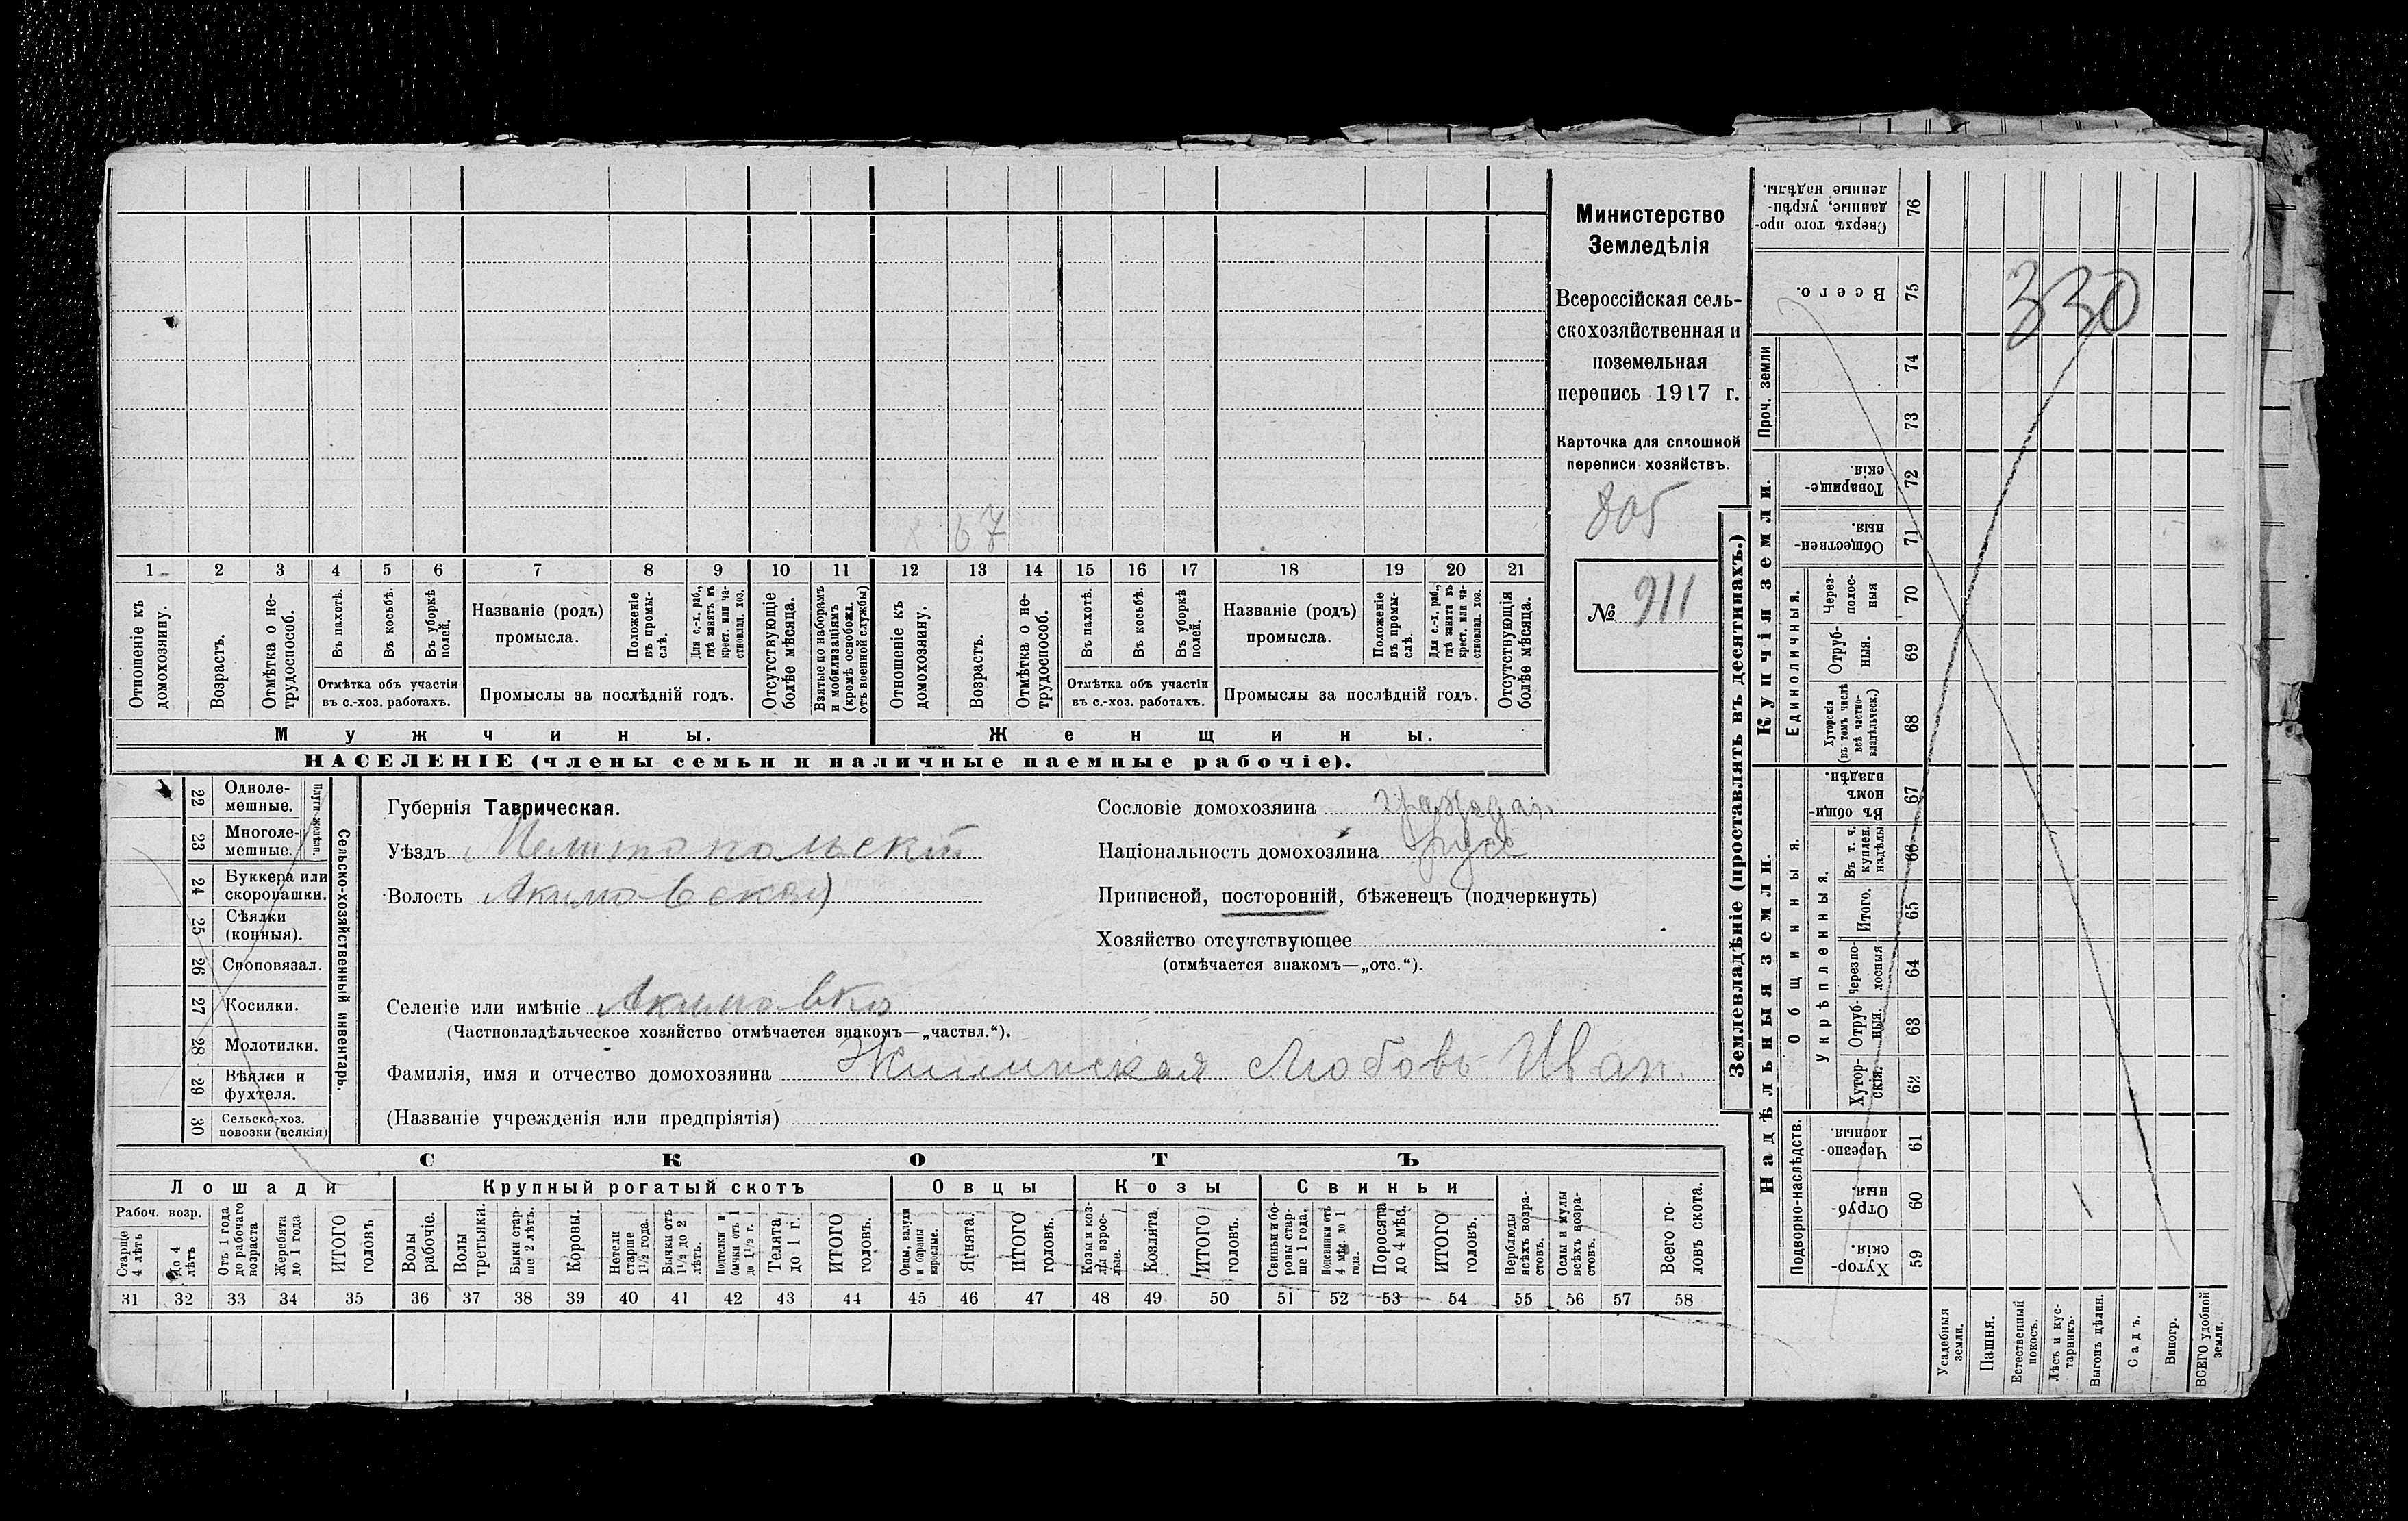 Министерство
Земледѣлія
Всероссійская сель-
скохозяйственная и
поземельная
перепись 1917 г.
Карточка для сплошной
переписи хозяйствъ.
805
№ 911
67
1 2 3 4 5 6 7 8 9 10 11 12 13 14 15 16 17 18 19 20 21
Отношеніе къ домохозяину.
Возрастъ.
Отмѣтка о не-трудоспособ.
Въ пахотѣ.
Въ косьбѣ.
Въ уборкѣ полей.
Отмѣтка объ участіи
въ с.-хоз. работахъ.
Названіе (родъ)
промысла.
Положеніе въ промы-слѣ.
Для с.-х. раб., гдѣ занятъ въ крест. или ча-стновлад. хоз.
Промыслы за послѣдній годъ.
Отсутствующіе болѣе мѣсяца.
Взятые по наборамъ и мобилизаціямъ (кромѣ освобожд. отъ военной службы)
Отношеніе къ домохозяину.
Возрастъ.
Отмѣтка о не-трудоспособ.
Въ пахотѣ.
Въ косьбѣ.
Въ уборкѣ полей.
Отмѣтка объ участіи
въ с.-хоз. работахъ.
Названіе (родъ)
промысла.
Положеніе въ промы-слѣ.
Для с.-х. раб., гдѣ занята въ крест. или ча-стновлад. хоз.
Промыслы за послѣдній годъ.
Отсутствующія болѣе мѣсяца.
Мужчины.
Женщины.
НАСЕЛЕНІЕ (члены семьи и наличные наемные рабочіе).
22 Одноле-мешные.
23 Многоле-мешные.
Плуги желѣзн.
24 Буккера или скоропашки.
25 Сѣялки (конныя).
26 Сноповязал.
27 Косилки.
28 Молотилки.
29 Вѣялки и фухтеля.
30 Сельско-хоз. повозки (всякія)
Сельско-хозяйственный инвентарь.
Губернія Таврическая.
Уѣздъ Мелитопольскій
Волость Акимовская
Селеніе или имѣніе Акимовка
(Частновладѣльческое хозяйство отмѣчается знакомъ—„частвл.“).
Фамилія, имя и отчество домохозяина Жилинская Любовь Иван.
(Названіе учрежденія или предпріятія)
Сословіе домохозяина граждан
Національность домохозяина русс
Приписной, посторонній, бѣженецъ (подчеркнуть)
Хозяйство отсутствующее
(отмѣчается знакомъ—„отс.“).
СКОТЪ
Лошади
Крупный рогатый скотъ
Овцы
Козы
Свиньи
Рабоч. возр.
Старше 4 лѣтъ
до 4 лѣтъ
Отъ 1 года до рабочаго возраста
Жеребята до 1 года
ИТОГО головъ
Волы рабочіе.
Волы третьяки.
Быки стар-ше 2 лѣтъ.
Коровы.
Нетели старше 1½ года.
Бычки отъ 1½ до 2 лѣтъ.
Подтелки и бычки отъ 1 до 1½ г.
Телята до 1 г.
ИТОГО головъ.
Овцы, валухи и бараны взрослые.
Ягнята.
ИТОГО головъ.
Козы и коз-лы взрос-лые.
Козлята
ИТОГО головъ.
Свиньи и бо-ровы стар-ше 1 года.
Подсвинки отъ 4 мѣс. до 1 года.
Поросята до 4 мѣс.
ИТОГО головъ.
Верблюды всѣхъ возра-стовъ.
Ослы и мулы всѣхъ возра-стовъ.
Всего го-ловъ скота.
31 32 33 34 35 36 37 38 39 40 41 42 43 44 45 46 47 48 49 50 51 52 53 54 55 56 57 58
Землевладѣніе (проставлять въ десятинахъ.)
Надѣльныя земли.
Купчія земли.
Проч. земли
Подворно-наслѣдств.
Общинныя.
Укрѣпленныя.
Единоличныя.
Сверхъ того про-данные, укрѣп-ленные надѣлы. 76
Всего. 75
330
74
73
Товарище-скія. 72
Обществен-ныя. 71
Через-полос-ныя 70
Отруб-ныя. 69
Хуторскія (въ томъ числѣ всѣ частно-владѣльческ.) 68
Въ общи-номъ владѣн. 67
Въ т. ч. куплен. надѣлы 66
Итого. 65
Черезпо-лосныя 64
Отруб-ныя. 63
Хутор-скія. 62
Черезпо-лосныя. 61
Отруб-ныя. 60
Хутор-скія. 59
Усадебныя земли.
Пашня.
Естественный покосъ.
Лѣсъ и кус-тарникъ.
Выгонъ цѣлин.
Садъ.
Виногр.
ВСЕГО удобной земли.